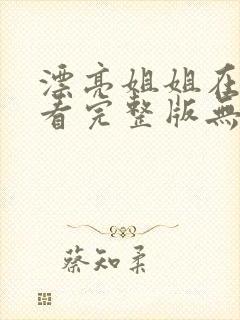 漂亮姐姐在
看完整版無
蔡知柔